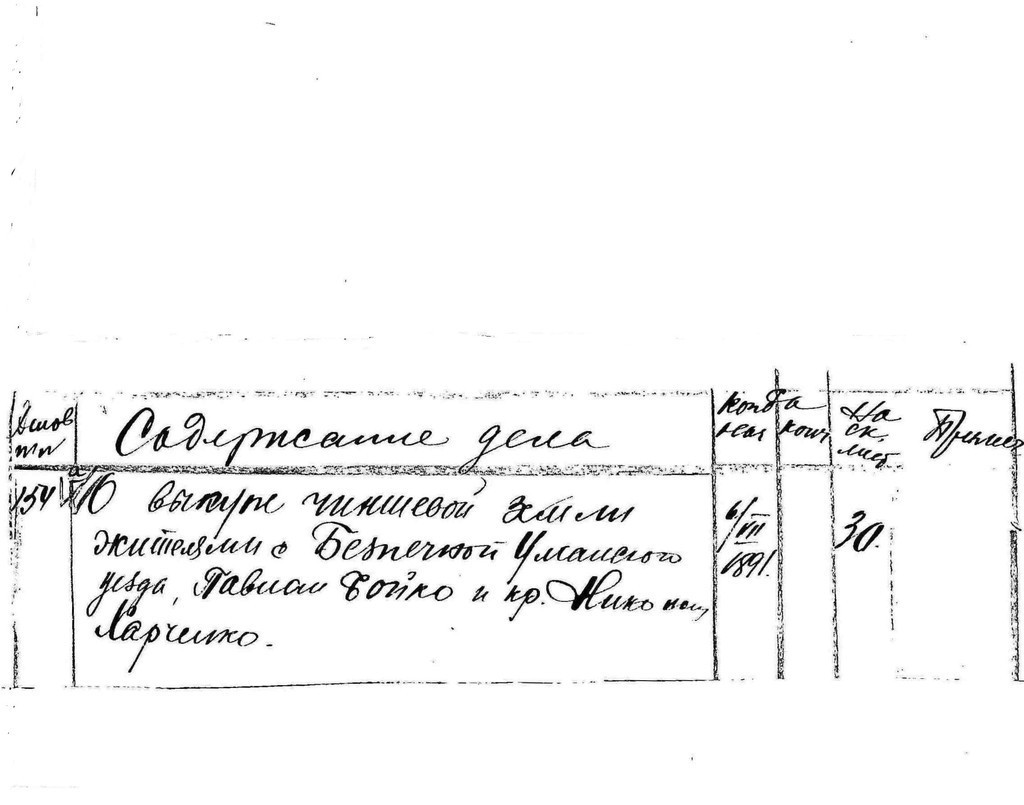 Содержание дела
На
ск.
лист
Примеч
154
О выкупе чиншевой земли
жителями с Безпечной Уманского
уезда, Павлом Бойко и кр. Никоном
Харченко.
6/VII
1891.
30.